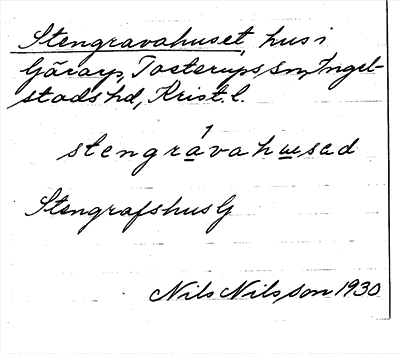 Stengravahuset, hus i
Gårarp, Tosterups sn, Ingel-
stads hd, Krist. l.
stengravahusad
Stengrafshus G
Nils Nilsson 1930